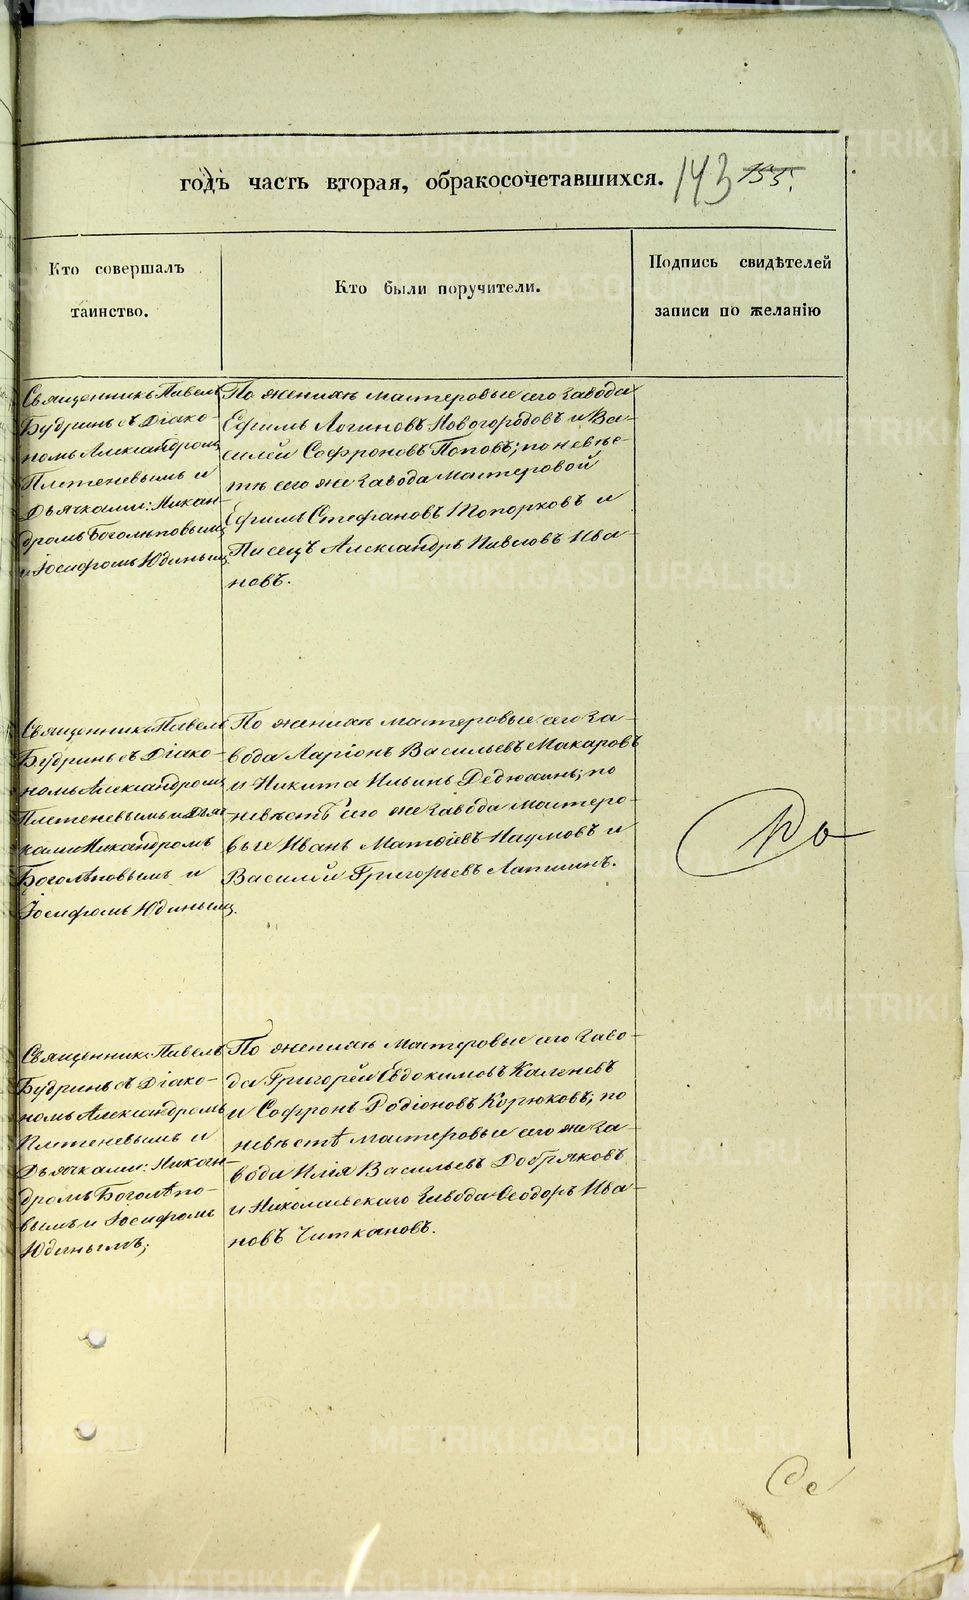 годъ часть вторая, обракосочетавшихся. 143 155.
Кто совершалъ
таинство.
Кто были поручители.
Подпись свидѣтелей
записи по желанію
Священникъ Павелъ
Будринъ съ Діако-
номъ Александромъ
Плетеневымъ и
Дьячками: Никан-
дромъ Боголѣповымъ
и Іосифомъ Юдинымъ
По женихѣ мастеровые сего завода
Ефимъ Логиновъ Новогородовъ и Ва-
силей Софроновъ Поповъ; по невѣс-
тѣ сего же завода мастеровой
Ефимъ Стефановъ Топорковъ и
Писецъ Александръ Павловъ Ива-
новъ.
Священникъ Павелъ
Будринъ съ Діако-
номъ Александромъ
Плетеневымъ и Дьяч-
ками Никандромъ
Боголѣповымъ и
Іосифомъ Юдинымъ.
По женихѣ мастеровые сего за-
вода Ларіонъ Васильевъ Макаровъ
и Никита Ильинъ Дедюхинъ; по
невѣстѣ сего же завода мастеро-
вые Иванъ Матѳіевъ Наумовъ и
Василей Григорьевъ Лапшинъ.
Священникъ Павелъ
Будринъ съ Діако-
номъ Александромъ
Плетеневымъ и
Дьячками: Никан-
дромъ Боголѣпо-
вымъ и Іосифомъ
Юдинымъ;
По женихѣ Мастеровые сего заво-
да Григорей Евдокимовъ Каленевъ
и Софронъ Родіоновъ Корюковъ; по
невѣстѣ мастеровые сего же за-
вода Илія Васильевъ Добряковъ
и Николаевскаго завода Ѳеодоръ Ива-
новъ Читкановъ.
METRIKI.GASO-URAL.RU